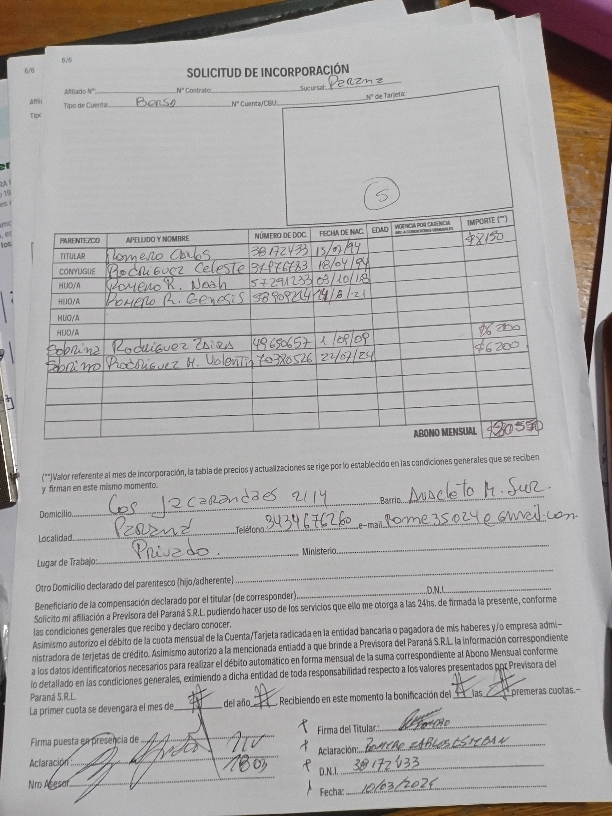 6/6
6/6
SOLICITUD DE INCORPORACIÓN
Afiliado Nº Nº Contrato: Sucursal: Parana
Tipo de Cuenta: Berso Nº Cuenta/CBU: Nº de Tarjeta:
5
PARENTEZCO APELLIDO Y NOMBRE NÚMERO DE DOC. FECHA DE NAC. EDAD VIGENCIA POR CARENCIA IMPORTE (**)
TITULAR Romero Carlos 38172433 13/07/94 $8150
CONYUGUE Rodriguez Celeste 18/04/94
HIJO/A Romero R. Noah 57291233 03/10/18
HIJO/A Romero R. Genesis
HIJO/A
HIJO/A
Sobrina Rodriguez 49650657 $6200
Sobrino Rodriguez M. Valentin 70380526 22/07/24 $6200
ABONO MENSUAL
(**)Valor referente al mes de incorporación, la tabla de precios y actualizaciones se rige por lo establecido en las condiciones generales que se reciben
y firman en este mismo momento.
Domicilio: Los Jacarandaes 2114 Barrio: Anacleto M. Sur.
Localidad: Parana Teléfono: 3434676260 e-mail: Rome35024@gmail.com
Lugar de Trabajo: Privado. Ministerio:
Otro Domicilio declarado del parentesco (hijo/adherente)
Beneficiario de la compensación declarado por el titular (de corresponder) D.N.I.
Solicito mi afiliación a Previsora del Paraná S.R.L. pudiendo hacer uso de los servicios que ello me otorga a las 24hs. de firmada la presente, conforme
las condiciones generales que recibo y declaro conocer.
Asimismo autorizo el débito de la cuota mensual de la Cuenta/Tarjeta radicada en la entidad bancaria o pagadora de mis haberes y/o empresa admi-
nistradora de terjetas de crédito. Asimismo autorizo a la mencionada entiadd a que brinde a Previsora del Paraná S.R.L. la información correspondiente
a los datos identificatorios necesarios para realizar el débito automático en forma mensual de la suma correspondiente al Abono Mensual conforme
lo detallado en las condiciones generales, eximiendo a dicha entidad de toda responsabilidad respecto a los valores presentados por Previsora del
Paraná S.R.L.
La primer cuota se devengara el mes de # del año # Recibiendo en este momento la bonificación del # las # premeras cuotas.-
Firma puesta en presencia de Firma del Titular: Romero
Aclaración: Aclaración: ROMERO CARLOS ESTEBAN
Nro Asesor 1803 D.N.I. 38172433
Fecha: 10/03/2026